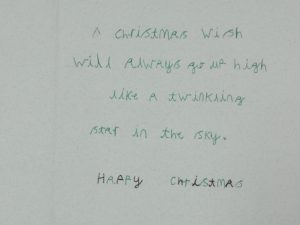 A christmas wish
will always go up high
like a twinkling
star in the sky.
HAPPY christmas